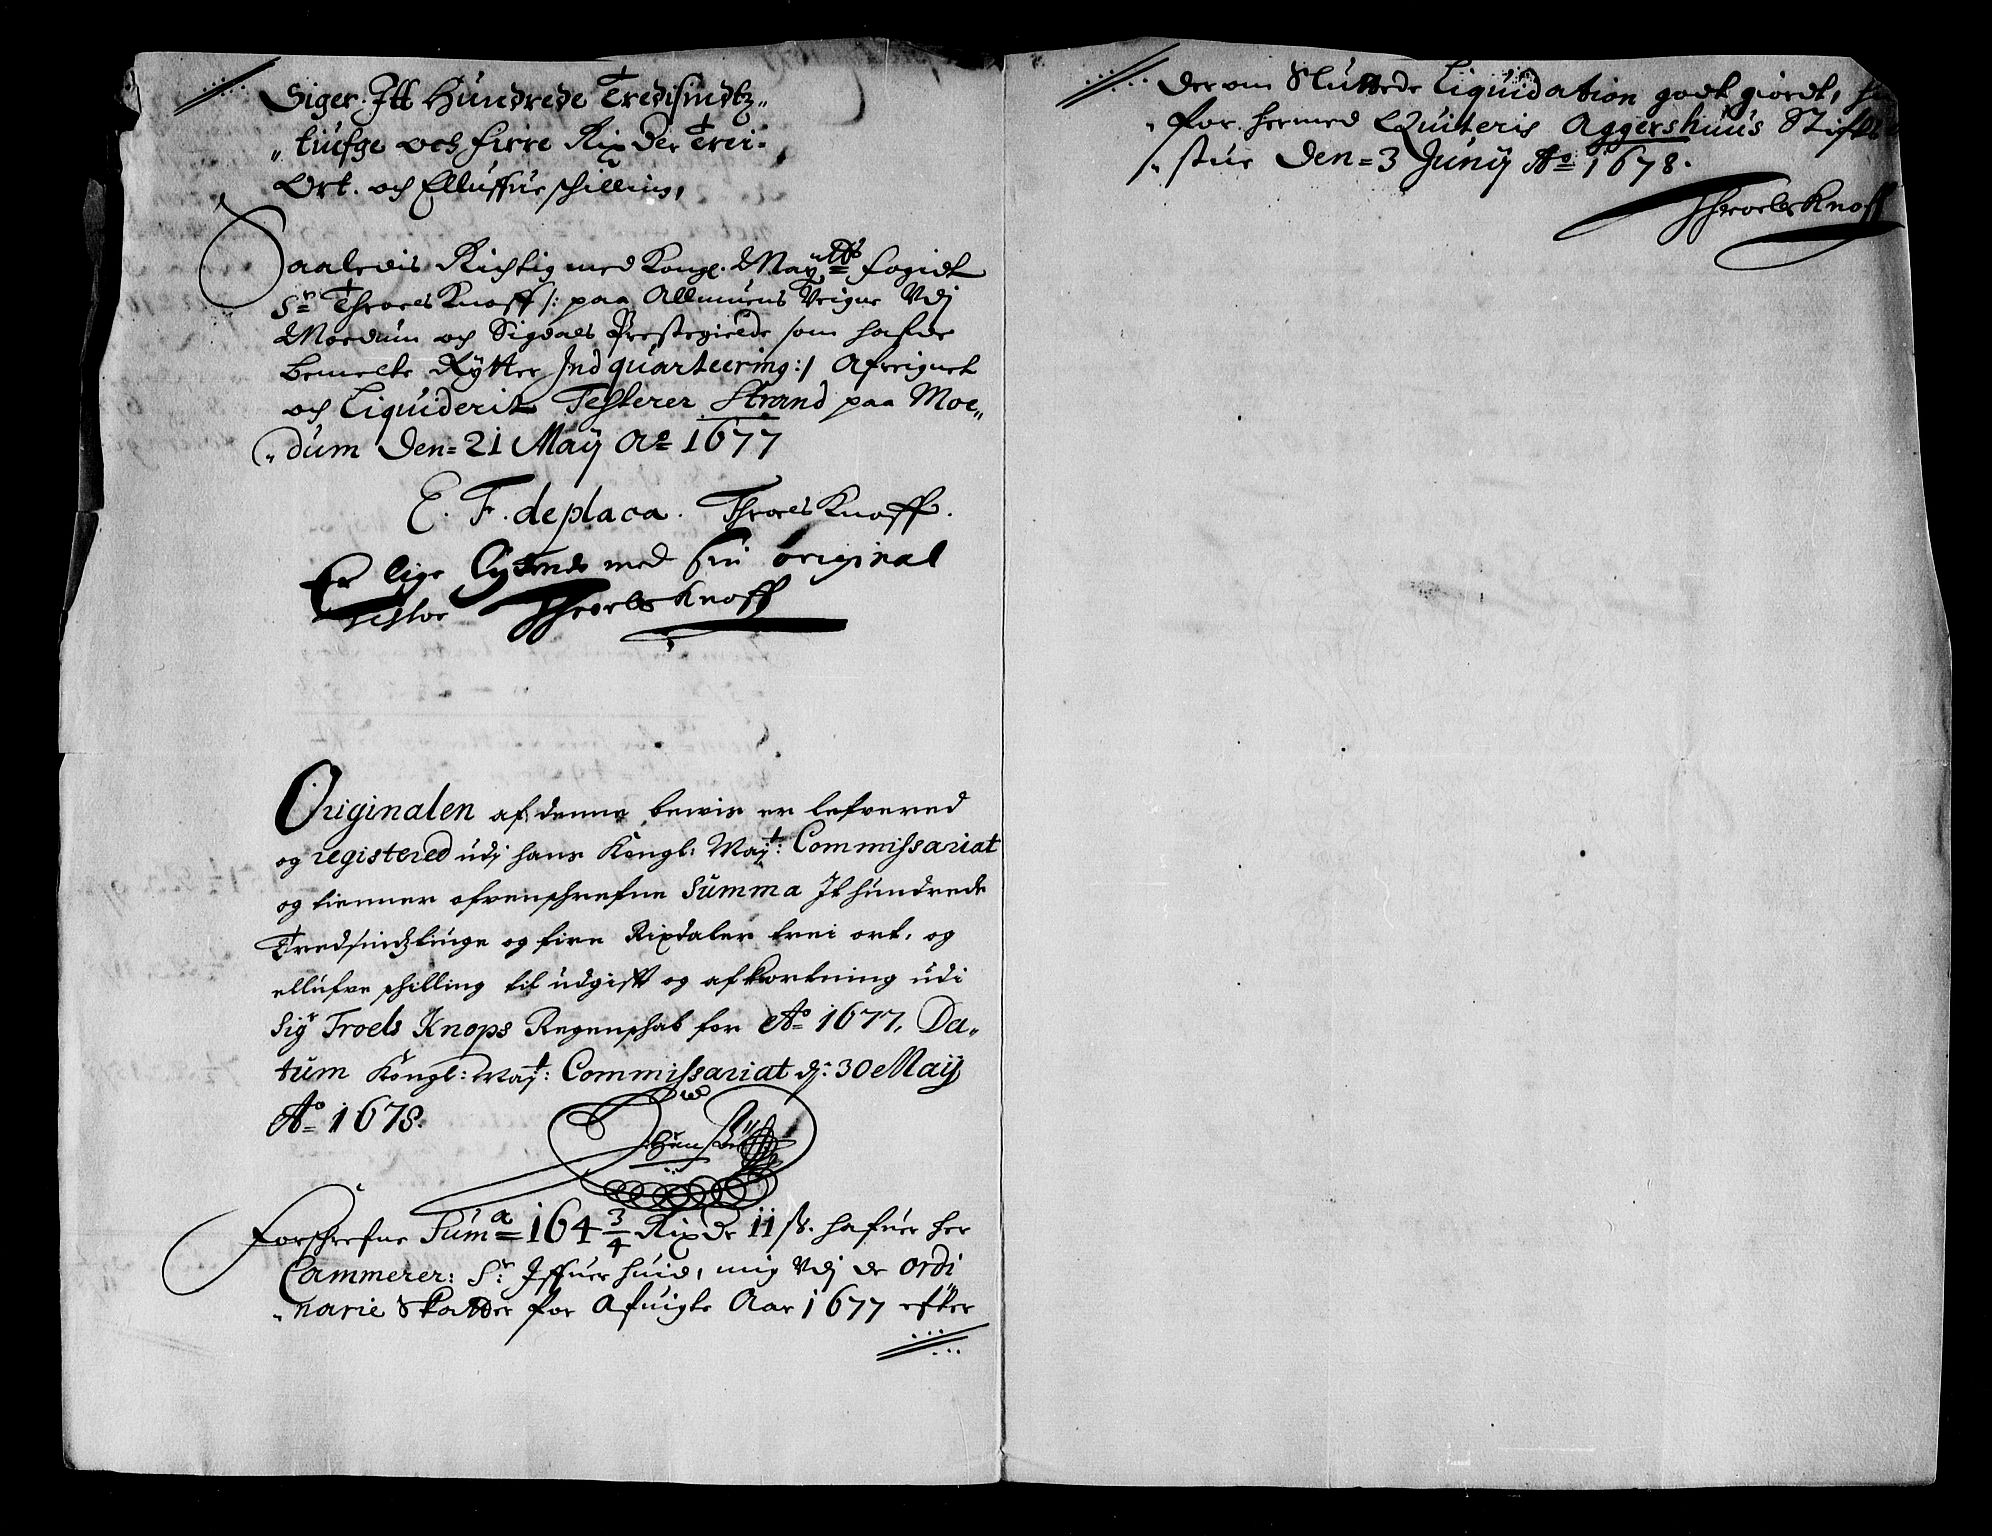 Siger Itt Hundrede Tredisindtz„
„tiufge och firre Rix Der Trei:
Ort. och Elluffue schilling,
Saaledis Richtig med Kongl. May„tts fogidt
Sr Throels Knoff /: paa Allmuens Veigne Vdj
Moedum och Sigdals Prestegielde som hafde
bemelte Rytter Indquarteering :/ Afreignet
och Liquiderit Testerer Strand paa Moe„
„dum Den= 21 Maij Ao 1677
E. F. deplaca. Throels Knoff.
Er lige Lydende med sin original
Testor Throels Knoff
Originalen af denne bewis er lefvered
og registered udj hans Kongl: Maj:t Commissariat
og tienner ofvenschrefne Summa It hundrede
Tredsindztiuge og fire Rixdaler trei ort, og
ellufve schilling til udgift og afkortning udi
Sigr Troels Knops Regenschab for Ao 1677. Da„
tum Kongl: Maj:t Commissariat dj: 30 Maij
Ao 1678.
Forschrefne Sum̄a 164 3/4 Rix Dr 11 ß. hafuer her
Cammerer: Sr: Iffuer huid, mig Vdj de ordi
„narie Skatter for Afuigte Aar 1677 efter
Der om Sluttede Liquidation godt giordt,
„for hermed Quiteris Aggershuus Stift
„stue Den= 3 Junij Ao 1678.
Throels Knoff